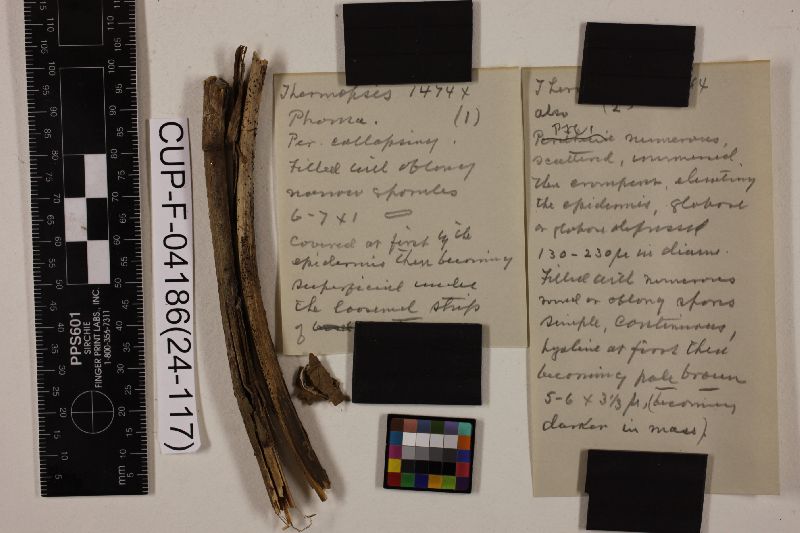 PPS601
SIRCHIE
FINGER PRINT LABS, INC.
1-800-356-7311
mm
CUP-F-04186(24-117)
Thermopsis 1474x
Phoma. (1)
Per. collapsing.
Filled with oblong
narrow sporules
6-7 x 1
Covered at first by the
epidermis then becoming
superficial under
the loosened strips
of
Ther
also (2
numerous,
scattered,
then erumpent, elevating
the epidermis, globose
or globose depressed
130-230µ in diam.
Filled with numerous
ovoid or oblong spores
simple, continuous,
hyaline at first then
becoming pale brown
5-6 x 3⅓ µ, (becoming
darker in mass).